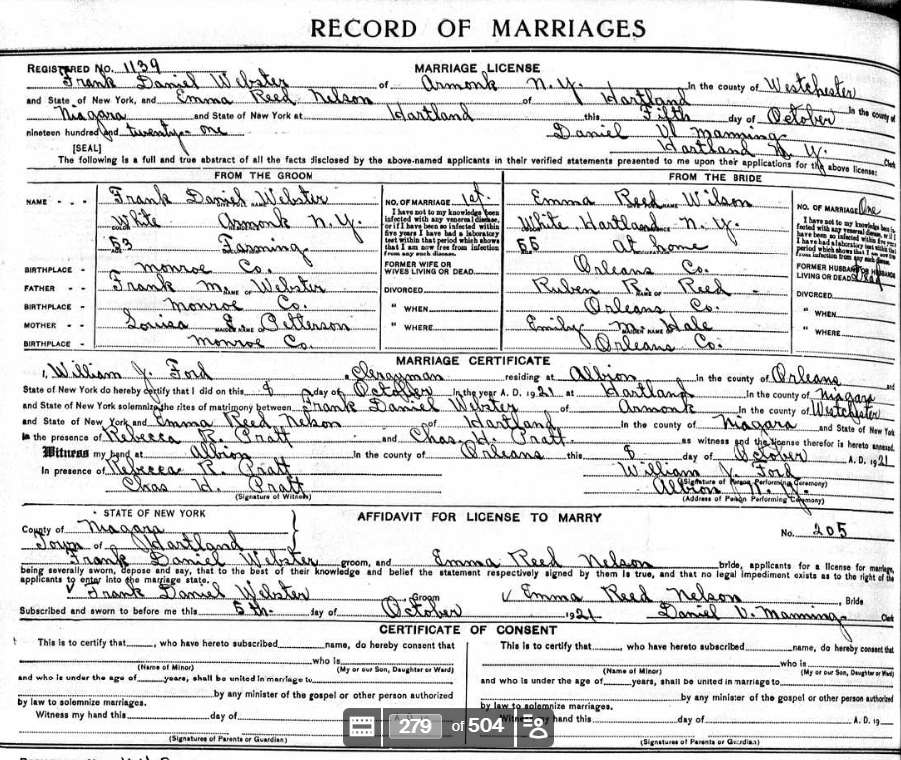 RECORD OF MARRIAGES
REGISTERED NO. 1139 MARRIAGE LICENSE
Frank Daniel Webster of Armonk N. Y. in the county of Westchester
and State of New York, and Emma Reed Nelson of Hartland in the county of
Niagara and State of New York at Hartland this Fifth day of October
nineteen hundred and twenty-one Daniel V. Manning
[SEAL] Hartland N. Y. Clerk
The following is a full and true abstract of all the facts disclosed by the above-named applicants in their verified statements presented to me upon their applications for the above license:
FROM THE GROOM FROM THE BRIDE
NAME - - - Frank Daniel Webster NO. OF MARRIAGE 1st Emma Reed Wilson NO. OF MARRIAGE One
White Armonk N. Y. White Hartland N. Y.
COLOR
I have not to my knowledge been
infected with any venereal disease,
or if I have been so infected within
five years I have had a laboratory
test within that period which shows
that I am now free from infection
from any such disease.
53 Farming 55 at home
BIRTHPLACE - - Monroe Co. FORMER WIFE OR WIVES LIVING OR DEAD Orleans Co. FORMER HUSBAND OR HUSBANDS LIVING OR DEAD Dead
FATHER - - Frank M. Webster DIVORCED Ruben R. Reed DIVORCED
NAME OF NAME OF
BIRTHPLACE - - Monroe Co. " WHEN Orleans Co. " WHEN
MOTHER - - Louisa E. Petterson " WHERE Emily M. Hale " WHERE
MAIDEN NAME OF MAIDEN NAME OF
BIRTHPLACE - - Monroe Co. Orleans Co.
MARRIAGE CERTIFICATE
I, William J. Ford, Clergyman residing at Albion in the county of Orleans and
State of New York do hereby certify that I did on this 8 day of October in the year A. D. 1921 at Hartland in the county of Niagara
and State of New York solemnize the rites of matrimony between Frank Daniel Webster of Armonk in the county of Westchester
and State of New York and Emma Reed Nelson of Hartland in the county of Niagara and State of New York
in the presence of Rebecca R. Pratt and Chas. H. Pratt as witness and the license therefor is hereto annexed.
Witness my hand at Albion in the county of Orleans this 8 day of October A. D. 1921
In presence of Rebecca R. Pratt William J. Ford
(Signature of Person Performing Ceremony)
Chas H. Pratt Albion N. Y.
(Signature of Witness) (Address of Person Performing Ceremony)
STATE OF NEW YORK AFFIDAVIT FOR LICENSE TO MARRY
County of Niagara No. 205
Town of Hartland
Frank Daniel Webster groom, and Emma Reed Nelson bride, applicants for a license for marriage,
being severally sworn, depose and say, that to the best of their knowledge and belief the statement respectively signed by them is true, and that no legal impediment exists as to the right of the
applicants to enter into the marriage state.
Frank Daniel Webster Groom Emma Reed Nelson Bride
Subscribed and sworn to before me this 5th day of October 1921 Daniel V. Manning Clerk
CERTIFICATE OF CONSENT
This is to certify that , who have hereto subscribed name, do hereby consent that This is to certify that , who have hereto subscribed name, do hereby consent that
who is who is
(Name of Minor) (My or our Son, Daughter or Ward) (Name of Minor) (My or our Son, Daughter or Ward)
and who is under the age of years, shall be united in marriage to and who is under the age of years, shall be united in marriage to
by any minister of the gospel or other person authorized by any minister of the gospel or other person authorized
by law to solemnize marriages. by law to solemnize marriages.
Witness my hand this day of Witness my hand this day of A. D. 19
279 of 504
(Signatures of Parents or Guardian) (Signatures of Parents or Guardian)